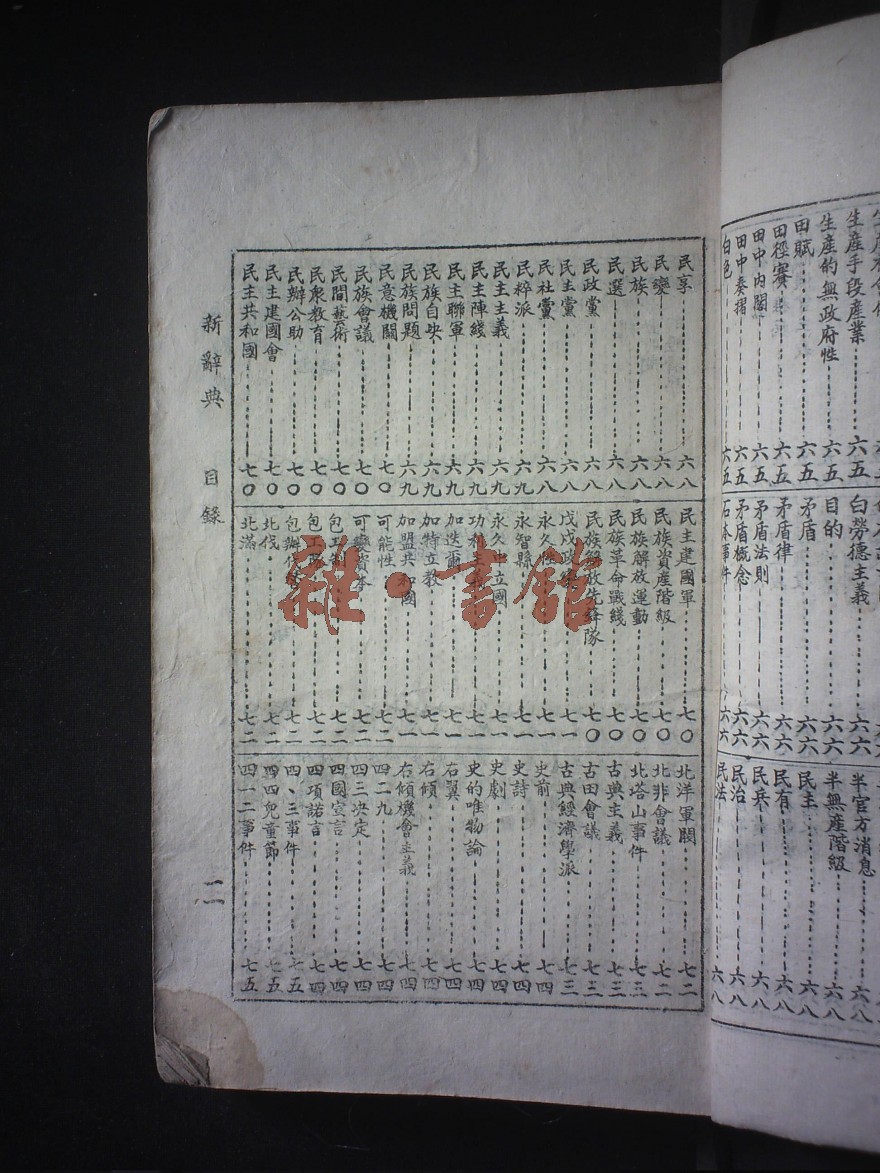 生產手段產業……六五
生產的無政府性……六五
田賦……六五
田徑賽……六五
田中內閣……六五
田中奏摺……六五
白色……六五
白勞德主義……六六
目的……六六
矛盾……六六
矛盾律……六六
矛盾法則……六六
矛盾概念……六六
石本事件……六六
半官方消息……六八
半無產階級……六八
民主……六八
民有……六八
民兵……六八
民治……六八
民法……六八
民享……六八
民變……六八
民族……六八
民選……六八
民政黨……六八
民主黨……六八
民社黨……六八
民粹派……六九
民主主義……六九
民主陣綫……六九
民主聯軍……六九
民族自決……六九
民族問題……六九
民意機關……七〇
民族會議……七〇
民間藝術……七〇
民衆教育……七〇
民辦公助……七〇
民主建國會……七〇
民主共和國……七〇
民主建國軍……七〇
民族資產階級……七〇
民族解放運動……七〇
民族革命戰綫……七〇
民族解放先鋒隊……七〇
戊戌政變……七一
永久性……七一
永智縣……七一
永久中立國……七一
功利主義……七一
加迭爾……七一
加特立教……七一
加盟共和國……七一
可能性……七二
可變資本……七二
包工制……七二
包工……七二
包辦代替……七二
北伐……七二
北滿……七二
北洋軍閥……七二
北非會議……七二
北塔山事件……七三
古典主義……七三
古田會議……七三
古典經濟學派……七三
史前……七四
史詩……七四
史劇……七四
史的唯物論……七四
右翼……七四
右傾……七四
右傾機會主義……七四
四二九……七四
四三決定……七四
四國宣言……七四
四項諾言……七四
四、三事件……七五
四四兒童節……七五
四一二事件……七五
新辭典 目錄 二
雜·書館